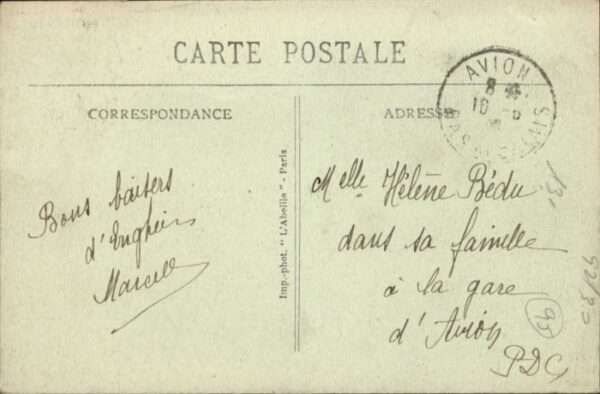 CARTE POSTALE
CORRESPONDANCE
ADRESSE
AVION
8
16
PAS CALAIS
Bons baisers
d'Enghien
Marcell
Imp.-phot. "L'Abeille" - Paris
Melle Hélène Bédu
dans sa famille
à la gare
d'Avion
PDC
95